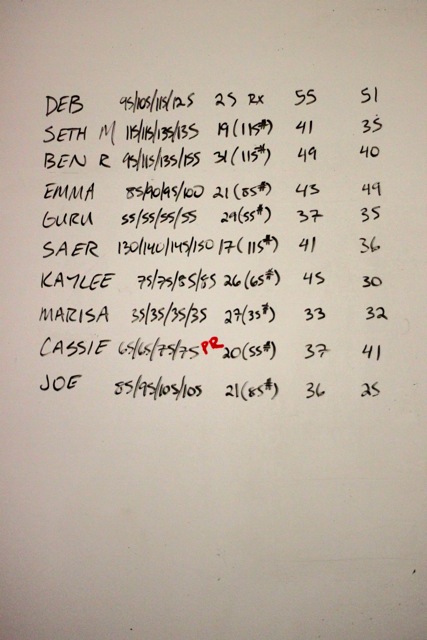 DEB 95/105/115/125 25 RX 55 51
SETH M 115/115/135/135 19(115#) 41 35
BEN R 95/115/135/155 31(115#) 49 40
EMMA 85/90/95/100 21(85#) 45 49
GURU 55/55/55/55 29(55#) 37 35
SAER 130/140/145/150 17(115#) 41 36
KAYLEE 75/75/85/85 26(65#) 45 30
MARISA 35/35/35/35 27(35#) 33 32
CASSIE 65/65/75/75 PR 20(55#) 37 41
JOE 85/95/105/105 21(85#) 36 25